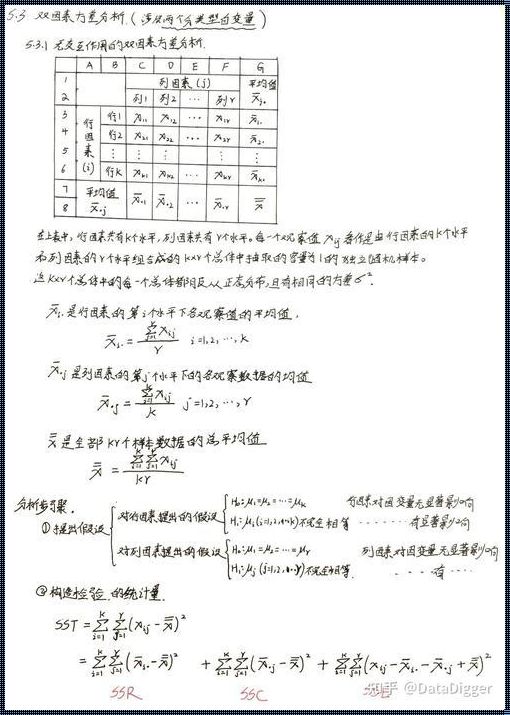 5.3 双因素方差分析.(涉及两个分类型自变量)
5.3.1 无交互作用的双因素方差分析.
A B C D E F G
1 列因素 (j) 平均值
2 列1 列2 … 列r x̄i.
3 行1 x11 x12 … x1r x̄1.
4 行因素(i) 行2 x21 x22 … x2r x̄2.
5 ⋮ ⋮ ⋮ ⋮ ⋮
6 行K xk1 xk2 … xkr x̄k.
7 平均值
8 x̄.j x̄.1 x̄.2 … x̄.r x̿
在上表中,行因素共有K个水平,列因素共有r个水平。每一个观察值xij看作是由行因素的K个水平
和列因素的r个水平组合成的k×r个总体中抽取的容量为1的独立随机样本。
这K×r个总体中的每一个总体都服从正态分布,且有相同的方差σ².
x̄i.是行因素的第i个水平下各观察值的平均值,
x̄i. = Σ(j=1→r) xij / r i=1,2,…,k
x̄.j是列因素的第j个水平下的各观察数据的均值
x̄.j = Σ(i=1→k) xij / k j=1,2,…,r
x̿是全部kr个样本数据的总平均值
x̿ = Σ(i=1→k) Σ(j=1→r) xij / kr
分析步骤.
①提出假设
对行因素提出的假设 H₀:μ₁=μ₂=…=μK 行因素对因变量无显著影响
H₁:μi(i=1,2,…k)不完全相等 …… 有显著影响
对列因素提出的假设 H₀:μ₁=μ₂=…=μr 列因素对因变量无显著影响
H₁:μj(j=1,2,…r)不完全相等. …… 有 ……
②构造检验的统计量.
SST = Σ(i=1→k) Σ(j=1→r) (xij - x̿)²
= Σ(i=1→k) Σ(j=1→r) (x̄i. - x̿)² + Σ(i=1→k) Σ(j=1→r) (x̄.j - x̿)² + Σ(i=1→k) Σ(j=1→r) (xij - x̄i. - x̄.j + x̿)²
SSR SSC SSE
知乎 @DataDigger